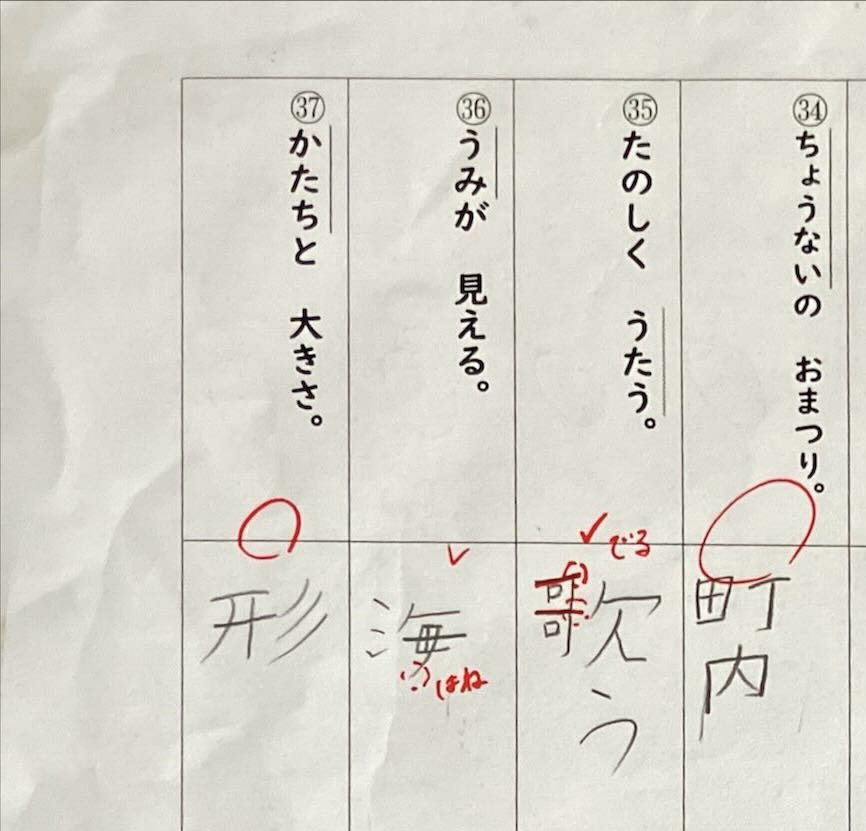 ㉞ちょうないの おまつり。
町内
㉟たのしく うたう。
でる
歌う
㊱うみが 見える。
海
はね
㊲かたちと 大きさ。
形